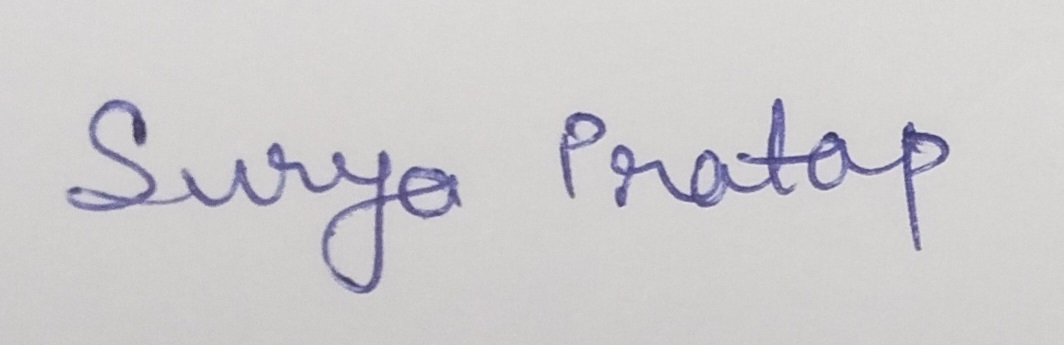 Surya Pratap